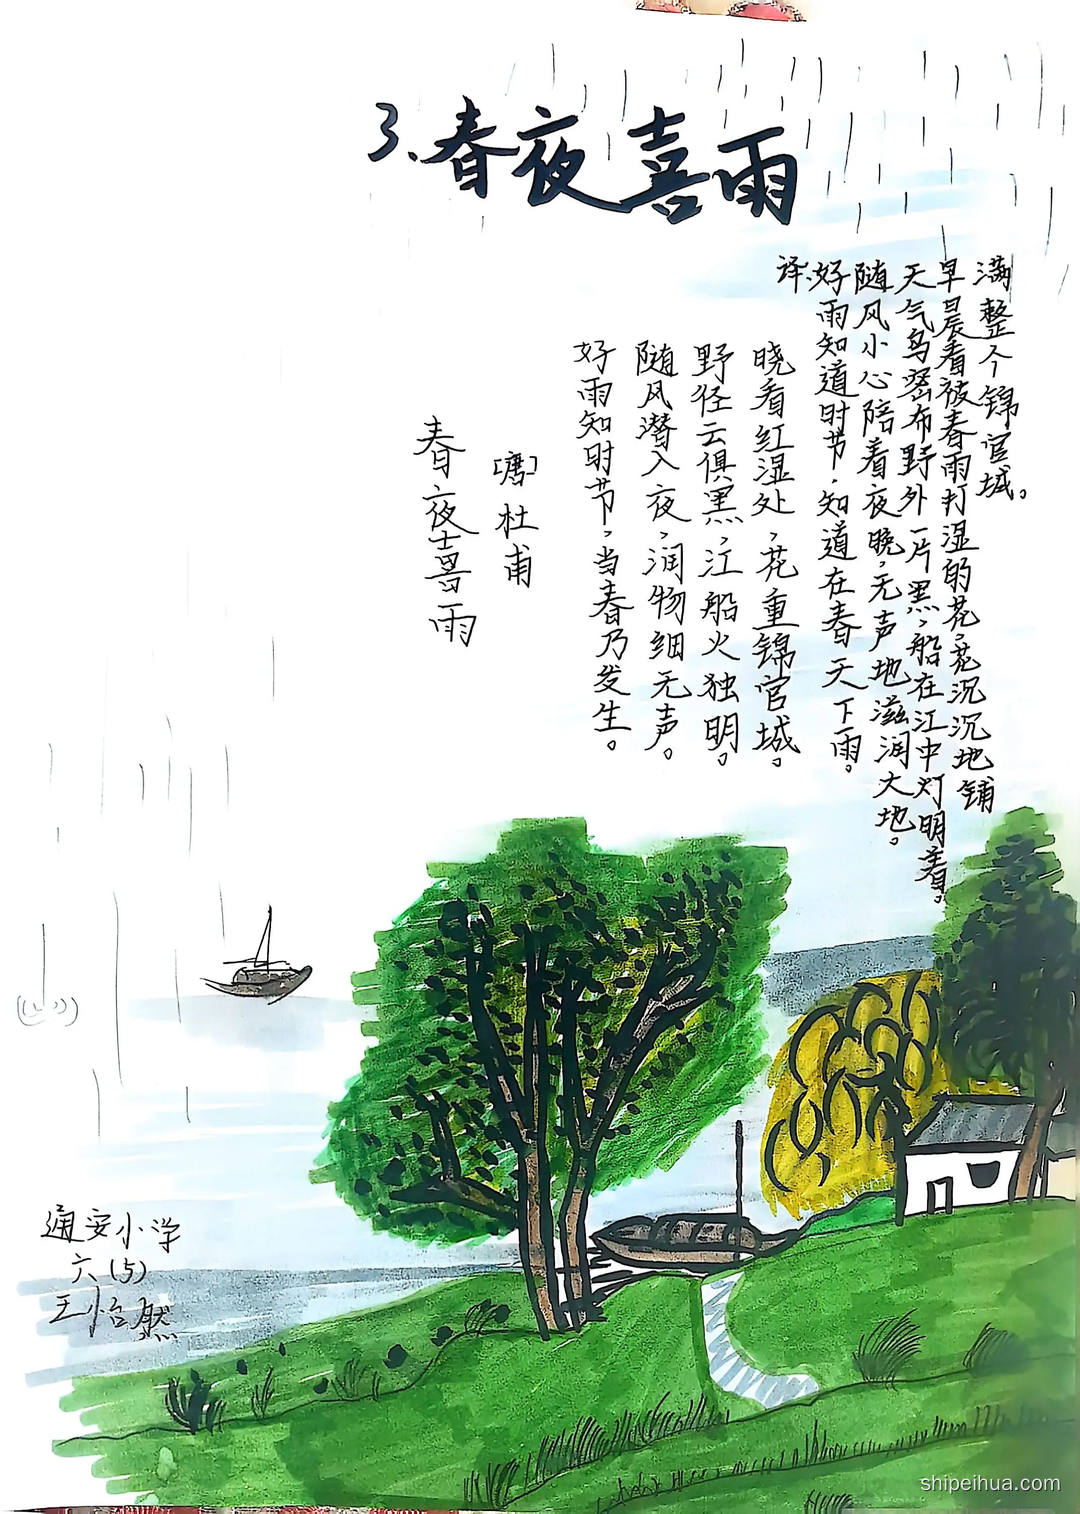 3、春夜喜雨
春夜喜雨
[唐]杜甫
好雨知时节,当春乃发生。
随风潜入夜,润物细无声。
野径云俱黑,江船火独明。
晓看红湿处,花重锦官城。
译:好雨知道时节,知道在春天下雨。
随风小心陪着夜晚,无声地滋润大地。
天气鸟密布野外一片黑,船在江中灯明着。
早晨看被春雨打湿的花,花沉沉地铺
满整个锦官城。
通安小学
六(5)
王怡然
shipeihua.com